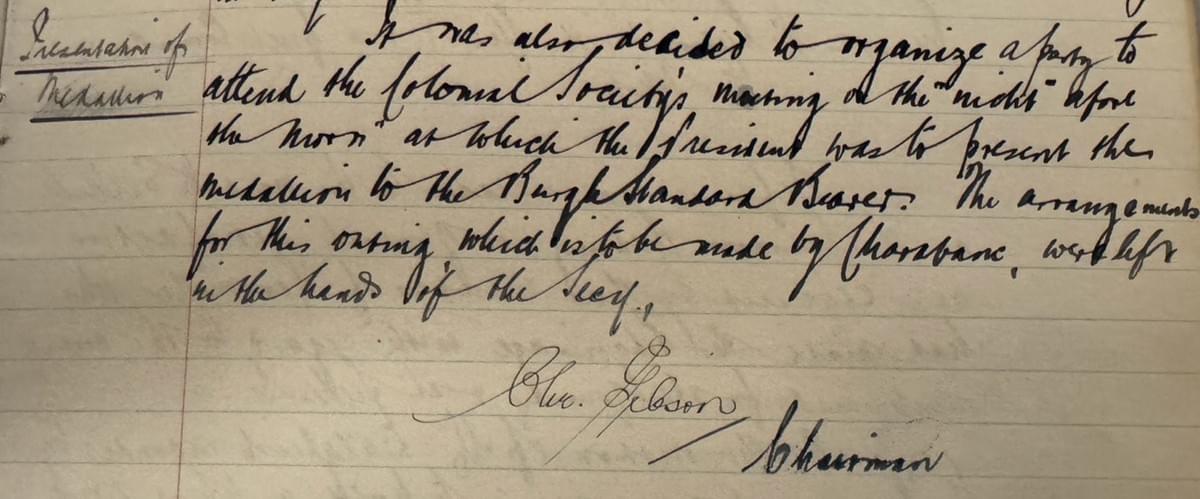 Presentation of
Medallion
It was also decided to organize a party to
attend the Colonial Society's meeting on the "night afore
the Morn" at which the President was to present the
medallion to the Burgh Standard Bearer. The arrangements
for this outing, which is to be made by Charabanc, were left
in the hands of the Secy.,
Chr. Gibson
Chairman